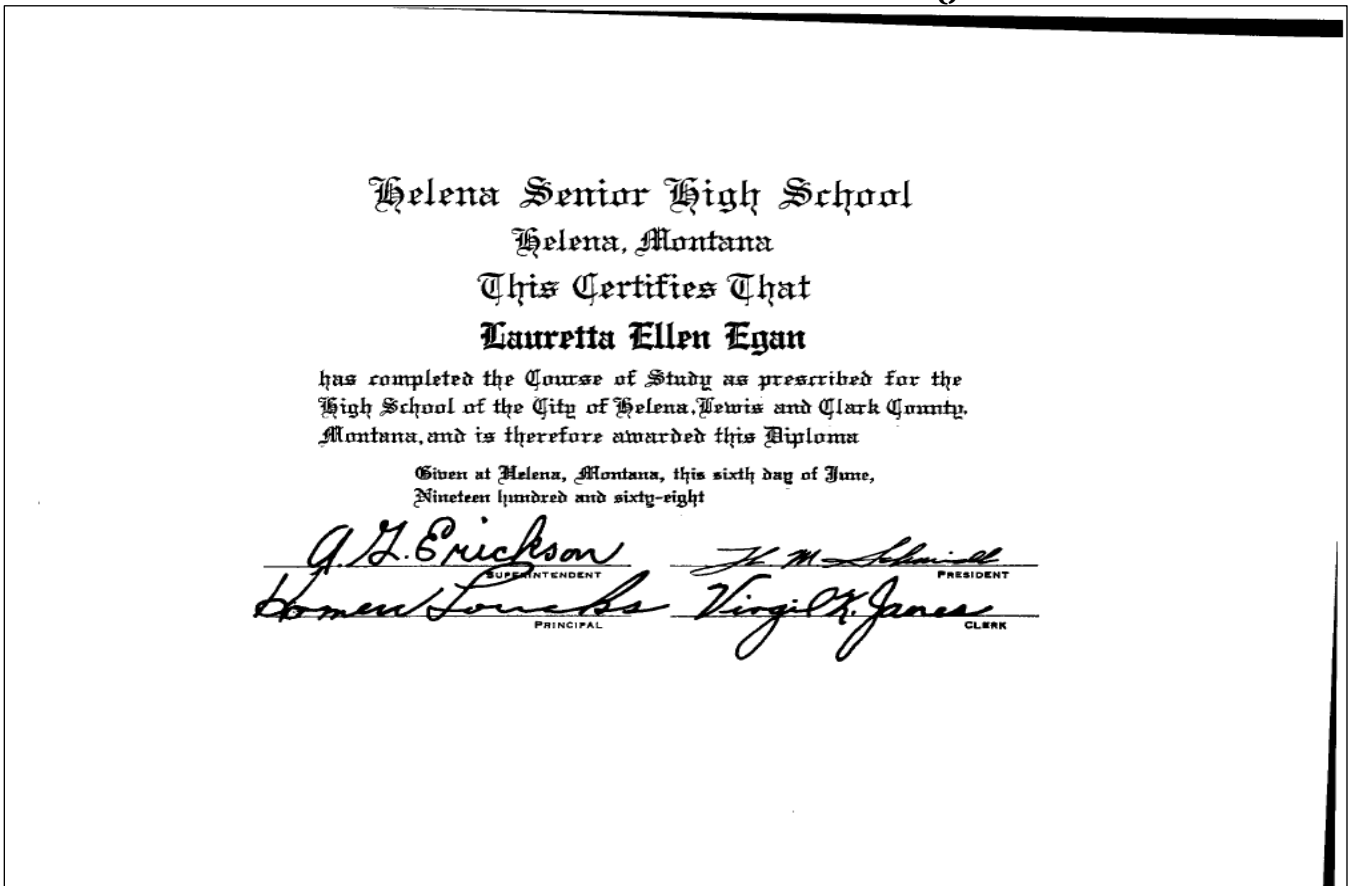 Helena Senior High School
Helena, Montana
This Certifies That
Lauretta Ellen Egan
has completed the Course of Study as prescribed for the
High School of the City of Helena, Lewis and Clark County,
Montana, and is therefore awarded this Diploma
Given at Helena, Montana, this sixth day of June,
Nineteen hundred and sixty-eight
Erickson H M Schmidt
SUPERINTENDENT PRESIDENT
Homer Loucks Virgil K. Janes
PRINCIPAL CLERK